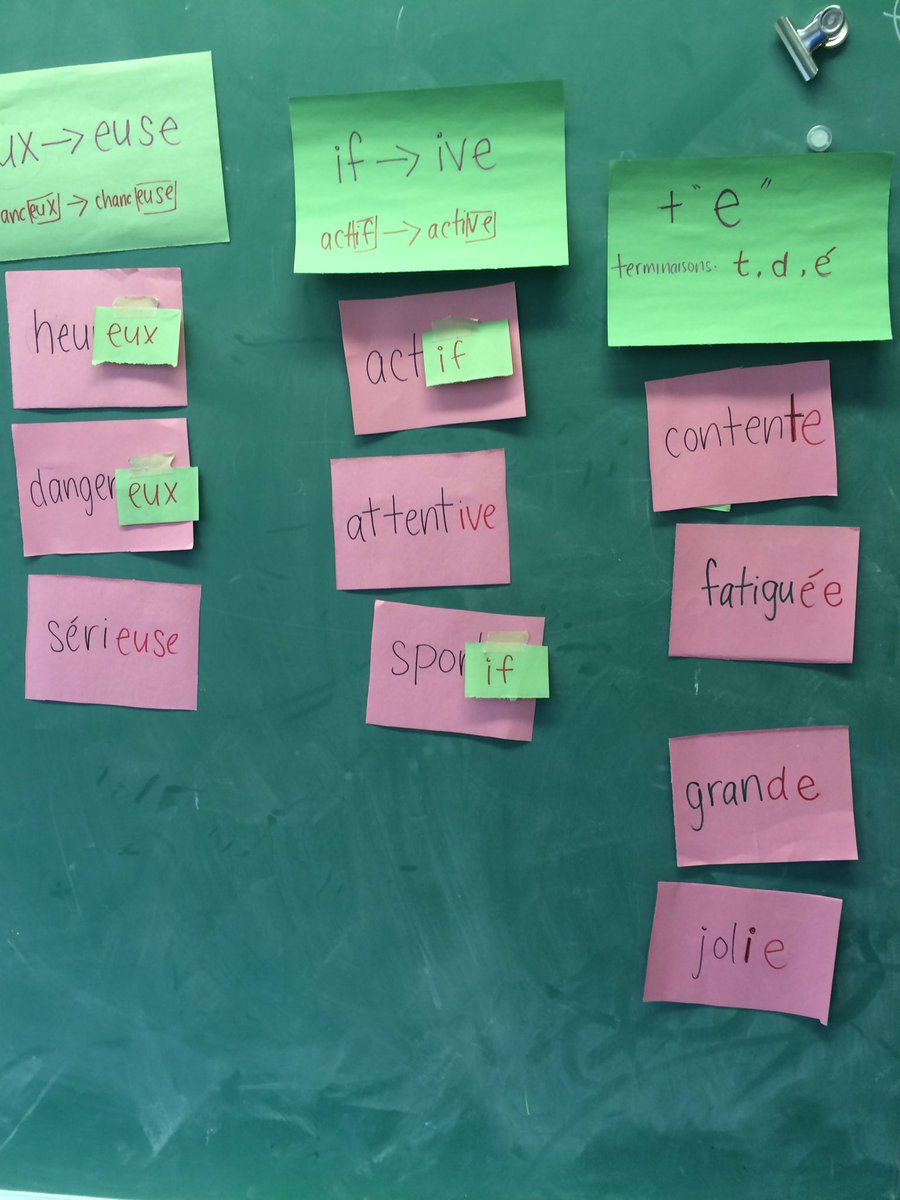 ux → euse
anceux → chanceuse
heureux
dangereux
sérieuse
if → ive
actif → active
actif
attentive
sportif
+ "e"
terminaisons. t, d, é
contente
fatiguée
grande
jolie